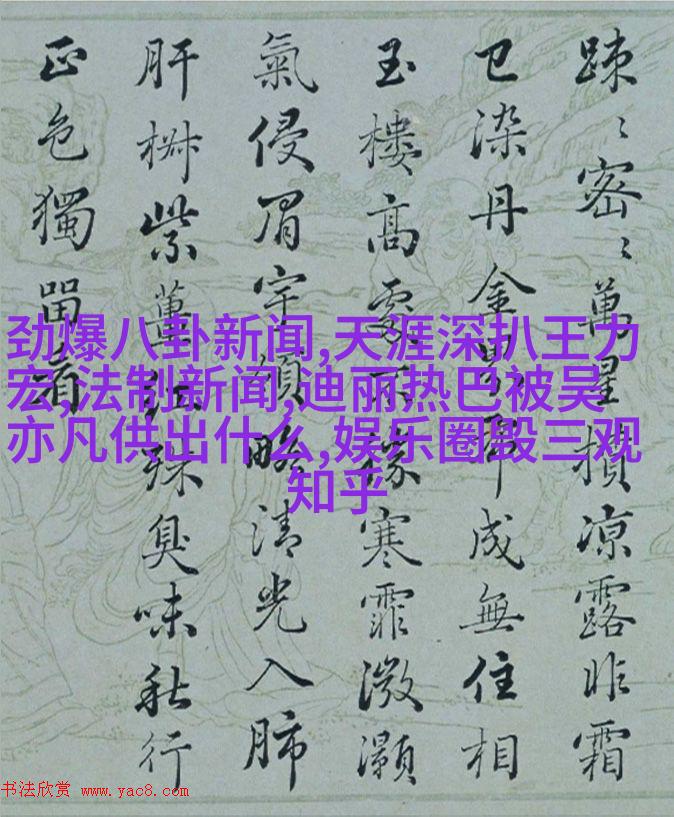 踈〻密〻萬星攢凉露昨霜
已染丹金成無住相
玉樓高處不寒霏微灝
氣侵眉宇領略清光入肺
肝紫臭味秋行
正色獨留看
劲爆八卦新闻,天涯深扒王力
宏,法制新闻,迪丽热巴被吴
亦凡供出什么,娱乐圈毁三观
知乎
书法欣赏 www.yac8.com